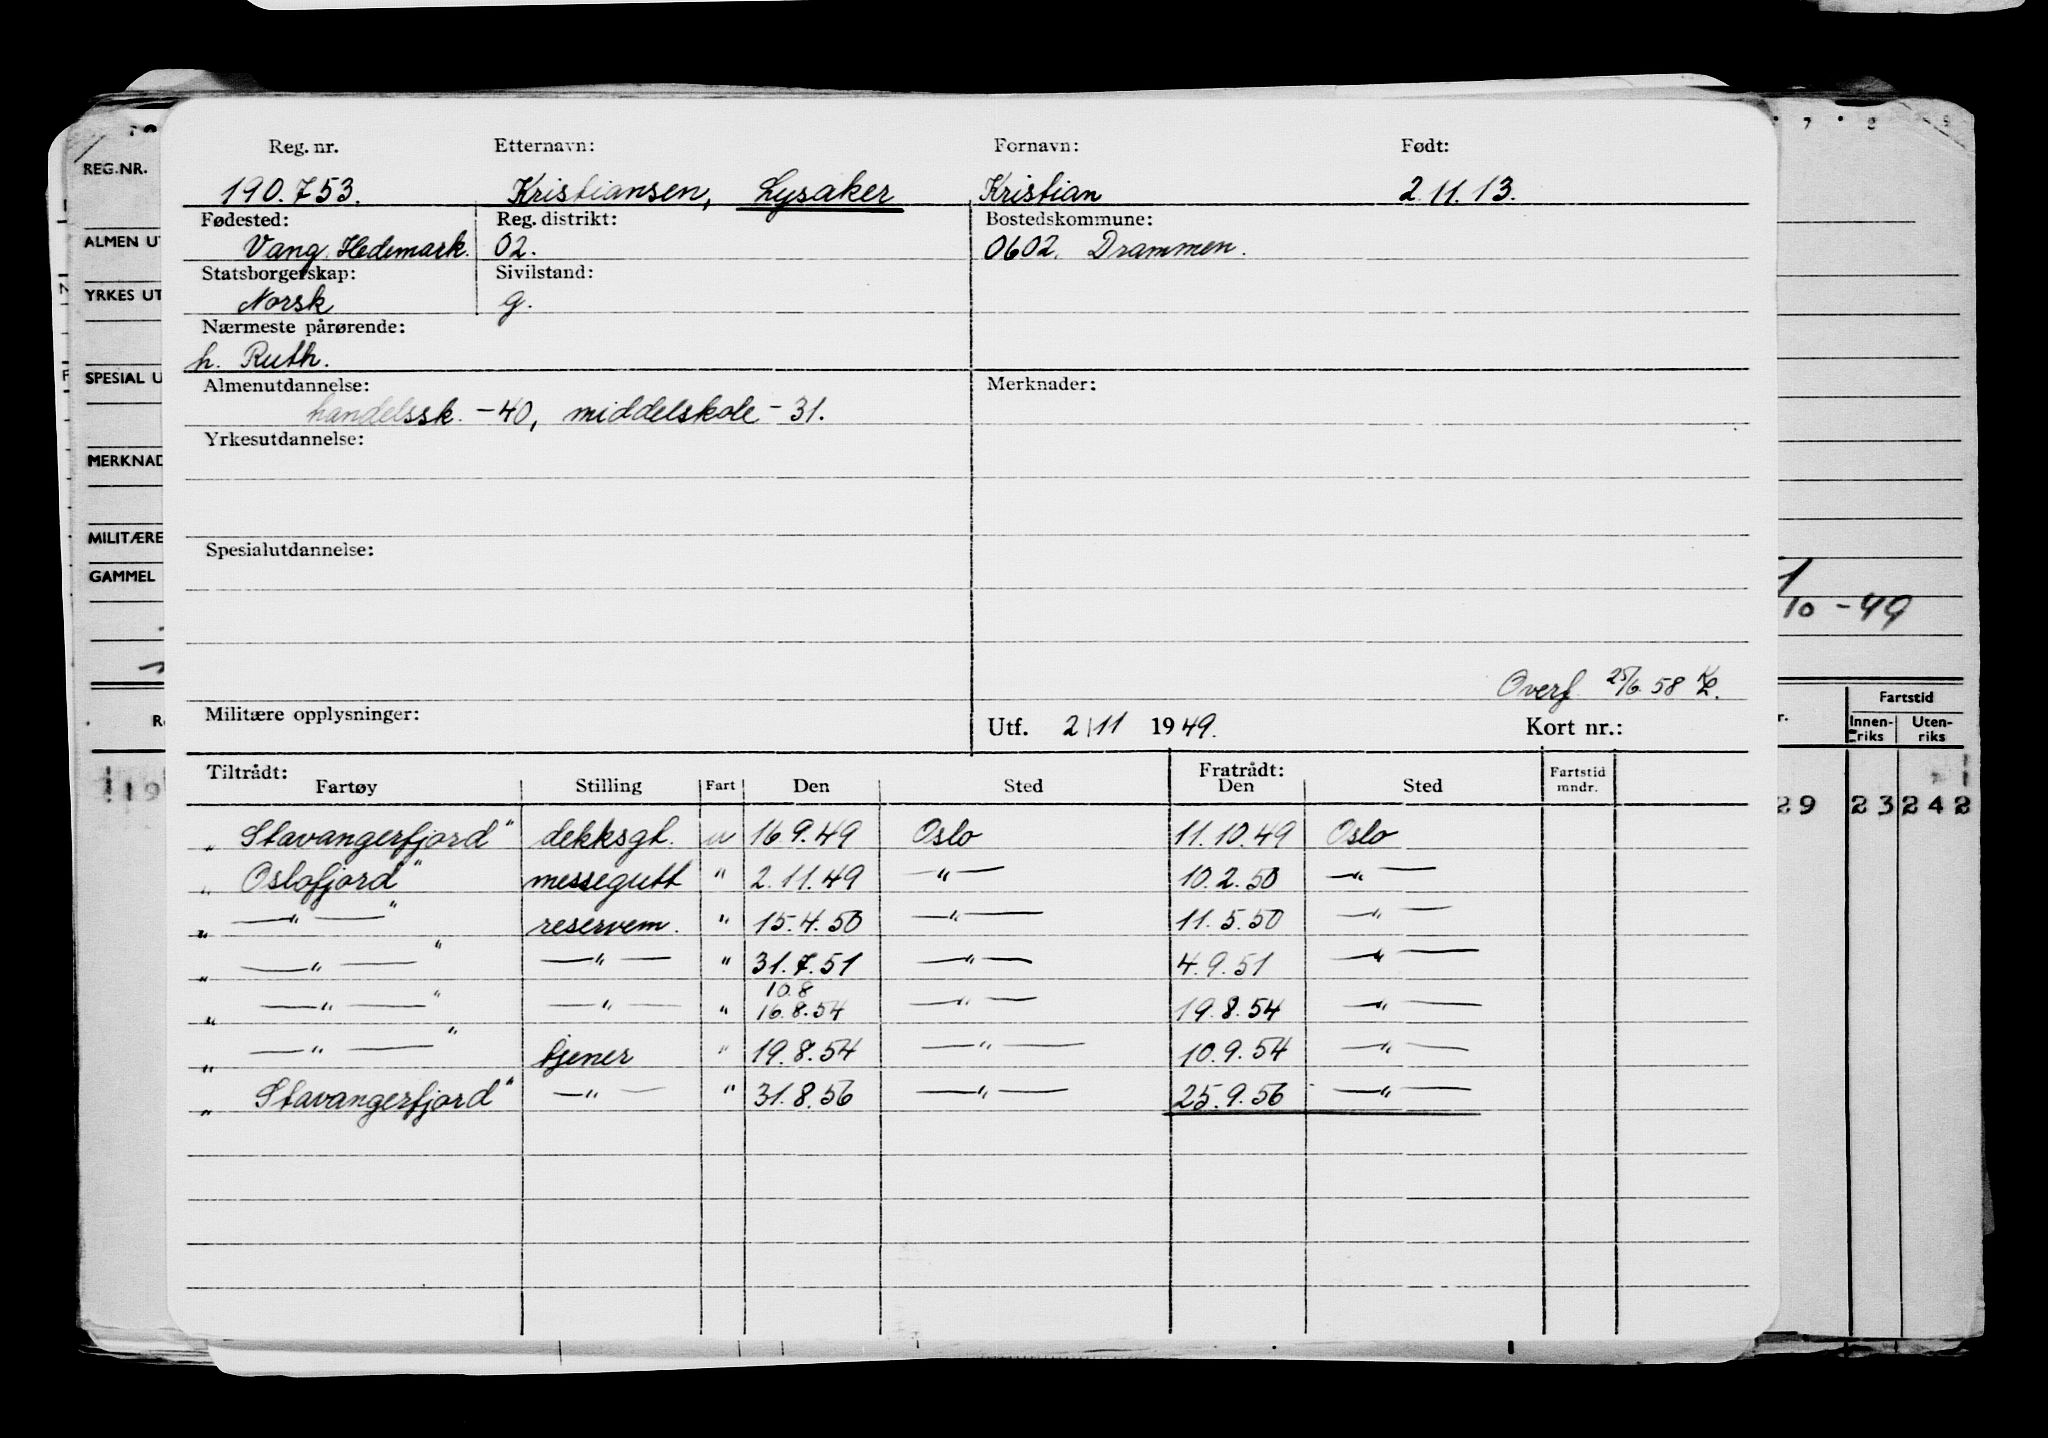 Reg. nr. Etternavn: Fornavn: Født:
190.753. Kristiansen, Lysaker Kristian 2.11.13.
Fødested: Reg. distrikt: Bostedskommune:
Vang, Hedemark. 02. 0602. Drammen.
Statsborgerskap: Sivilstand:
Norsk g.
Nærmeste pårørende:
h. Ruth.
Almenutdannelse: Merknader:
handelssk. -40, middelskole -31.
Yrkesutdannelse:
Spesialutdannelse:
Overf 25/6 58 KL.
Militære opplysninger: Utf. 2/11 1949. Kort nr.:
Tiltrådt: Fratrådt:
Fartøy Stilling Fart Den Sted Den Sted Fartstid mndr.
„ Stavangerfjord" dekksgt. u 16.9.49 Oslo 11.10.49 Oslo
„ Oslofjord" messegutt " 2.11.49 —"— 10.2.50 —"—
„ —"—" reservem. " 15.4.50 —"— 11.5.50 —"—
„ —"—" —"— " 31.7.51 —"— 4.9.51 —"—
10.8
„ —"—" —"— " 16.8.54 —"— 19.8.54 —"—
„ —"—" tjener " 19.8.54 —"— 10.9.54 —"—
„ Stavangerfjord" —"— " 31.8.56 —"— 25.9.56 —"—
REG.NR.
ALMEN UT
YRKES UT
SPESIAL U
MERKNAD
MILITÆRE
GAMMEL
7 8 9
1/10 -49
Fartstid
r. Innenriks Utenriks
29 23 242